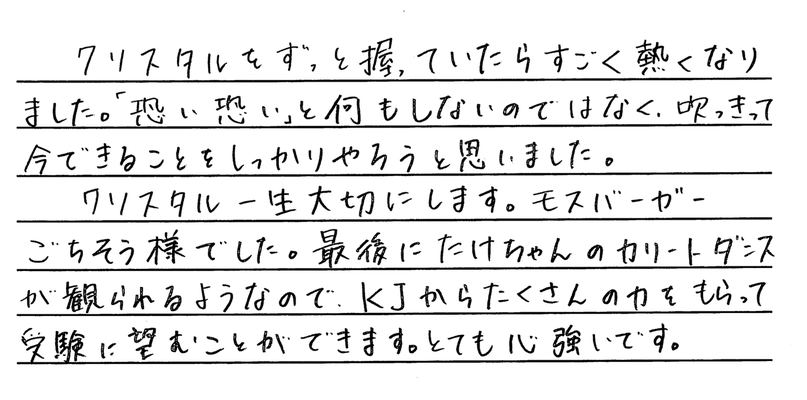 クリスタルをずっと握っていたらすごく熱くなり
ました。「恐い恐い」と何もしないのではなく、吹っきって
今できることをしっかりやろうと思いました。
クリスタル一生大切にします。モスバーガー
ごちそう様でした。最後にたけちゃんのカリートダンス
が観られるようなので、KJからたくさんの力をもらって
受験に望むことができます。とても心強いです。